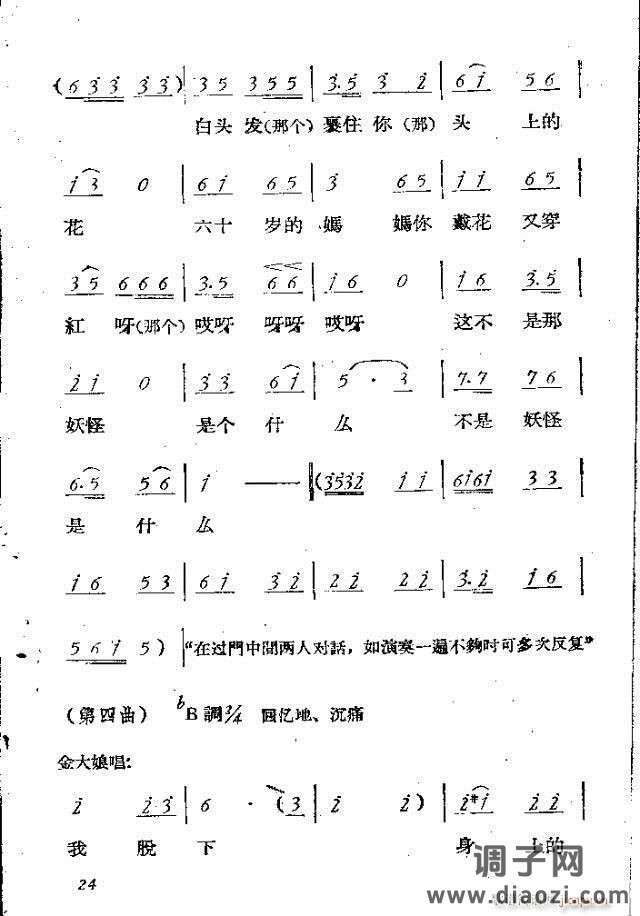 (6 3 3 3 3) | 3 5 3 5 5 | 3·5 3 2 | 6 1 5 6 |
白头 发(那个) 裹住 你(那) 头 上的
1 3 0 | 6 1 6 5 | 3 6 5 | 1 1 6 5 |
花 六十 岁的 媽 媽你 戴花 又穿
3 5 6 6 6 | 3·5 6 6 | 1 6 0 | 1 6 3·5 |
紅 呀(那个) 哎呀 呀呀 哎呀 这不 是那
2 1 0 | 3 3 6 1 | 5 · 3 | 7·7 7 6 |
妖怪 是个 什 么 不是 妖怪
6·5 5 6 | 1 — | (3532 1 1 | 6161 3 3 |
是 什 么
1 6 5 3 | 6 1 3 2 | 2 2 2 | 3·2 1 6 |
5 6 1 5) | “在过門中間两人对話，如演奏一遍不夠时可多次反复”
(第四曲) bB調2/4 回忆地、沉痛
金大娘唱:
2 2 3 | 6 · (3 | 2 2) | 2 #1 2 2 |
我 脫 下 身 上的
24
调子网
www.diaozi.com